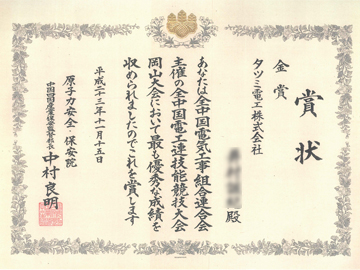 賞状
金賞
タツミ電工株式会社
殿
あなたは全中国電気工事組合連合会
主催の全中国電工連技能競技大会
岡山大会において最も優秀な成績を
収められましたのでこれを賞します
平成二十三年十一月十五日
原子力安全・保安院
中国四国産業保安監督部長 中村良明